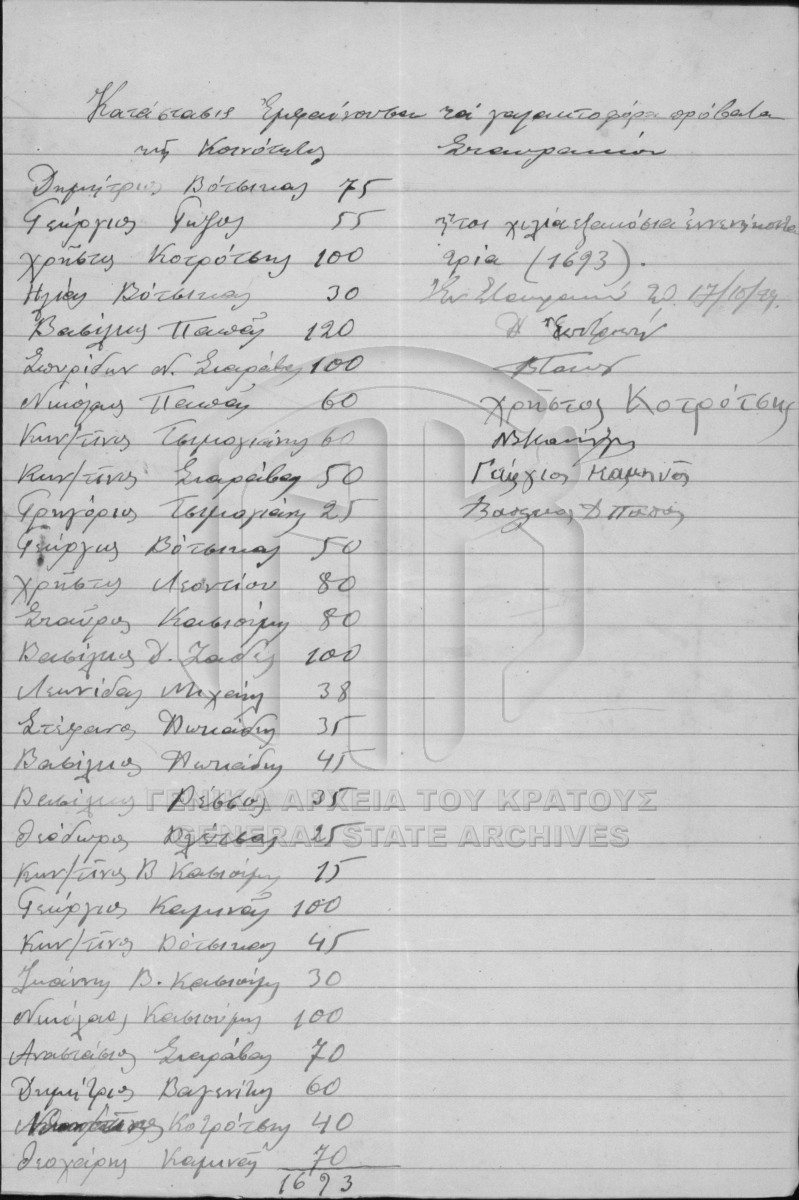 Κατάστασις Ἐμφαίνουσα τά γαλακτοφόρα πρόβατα
τῆς Κοινότητος Σταυρακίου
Δημήτριος Βότσικας 75
Γεώργιος Γῶγος 55
Χρῆστος Κοτρότσης 100
Ηλίας Βότσικας 30
Βασίλειος Παπᾶς 120
Σπυρίδων Ν. Σιαράβας 100
Νικόλαος Παπᾶς 60
Κων/τῖνος Τσιμογιάνης 60
Κων/τῖνος Σιαράβας 50
Γρηγόριος Τσιμογιάνης 25
Γεώργιος Βότσικας 50
Χρῆστος Λεοντίου 80
Σταῦρος Κατσούμης 80
Βασίλειος Δ. 100
Λεωνίδας Μιχάλης 38
Στέφανος 35
Βασίλειος 45
Βασίλειος Δέσσος 35
Θεόδωρος 25
Κων/τῖνος Β Κατσούμης 15
Γεώργιος Καμινᾶς 100
Κων/τῖνος Βότσικας 45
Ἰωάννης Β. Κατσούμης 30
Νικόλαος Κατσούμης 100
Αναστάσιος Σιαράβας 70
Δημήτριος Βαγενίτης 60
Κοτρότσης 40
Θεοχάρης Καμινᾶς 70
1693
ἤτοι χιλία εξακόσια ἐννενήκοντα
τρία (1693).
Ἐν Σταυρακίῳ τῇ 17/10/44
Ἡ Ἐπιτροπή
Χρῆστος Κοτρότσης
Γεώργιος Καμηνᾶς
Βασίλιος Δ Παπάς
ΓΕΝΙΚΑ ΑΡΧΕΙΑ ΤΟΥ ΚΡΑΤΟΥΣ
GENERAL STATE ARCHIVES